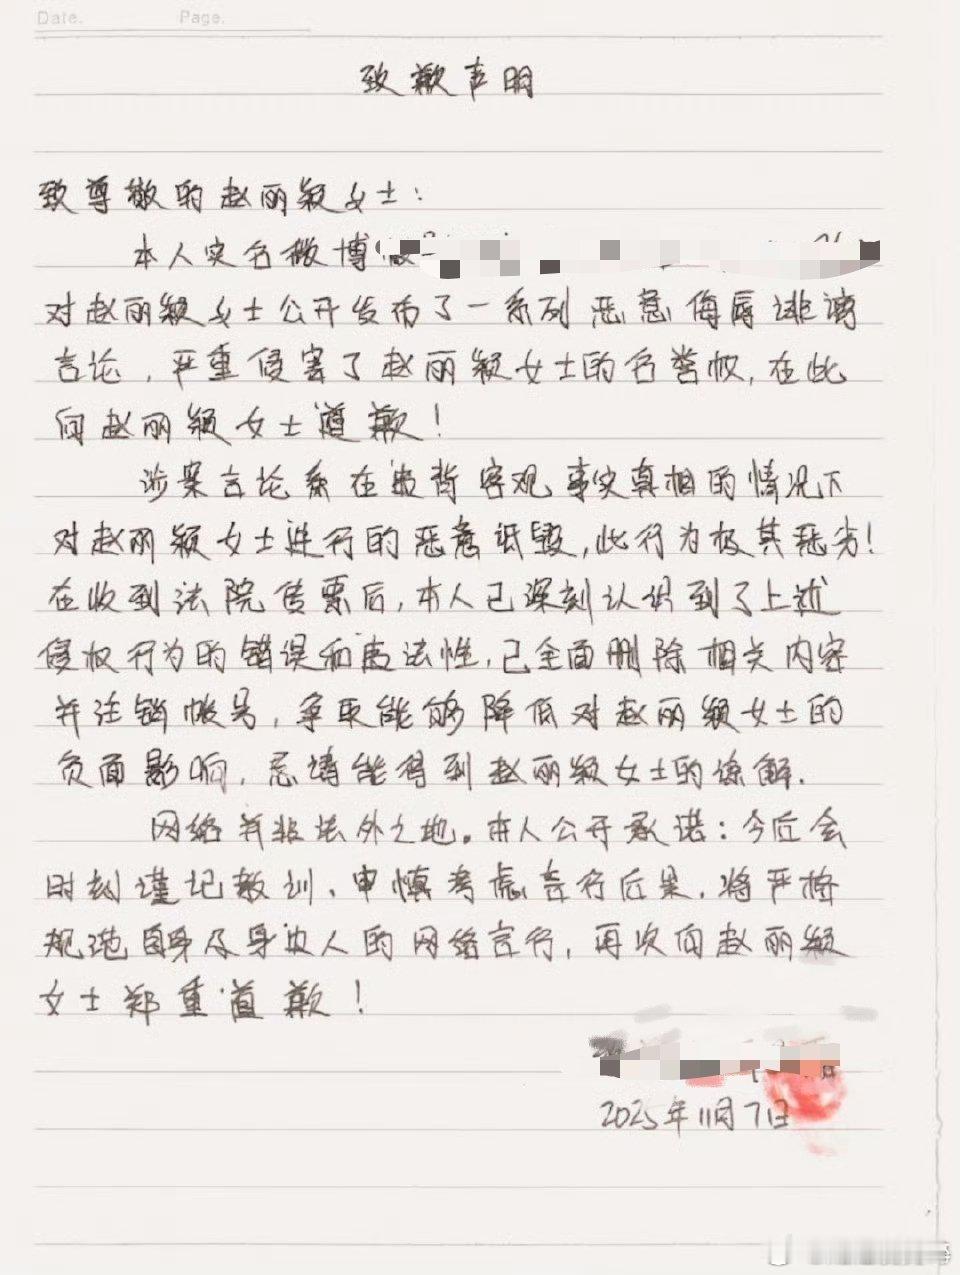 Date. Page.
致歉声明
致尊敬的赵丽颖女士：
本人实名微博
对赵丽颖女士公开发布了一系列恶意侮辱诽谤
言论，严重侵害了赵丽颖女士的名誉权，在此
向赵丽颖女士道歉！
涉案言论系在违背客观事实真相的情况下
对赵丽颖女士进行的恶意诋毁，此行为极其恶劣！
在收到法院传票后，本人已深刻认识到了上述
侵权行为的错误和违法性，已全面删除相关内容
并注销帐号，争取能够降低对赵丽颖女士的
负面影响，恳请能得到赵丽颖女士的谅解．
网络并非法外之地。本人公开承诺：今后会
时刻谨记教训、审慎考虑言行后果．将严格
规范自身及身边人的网络言行，再次向赵丽颖
女士郑重道歉！
2025年11月7日